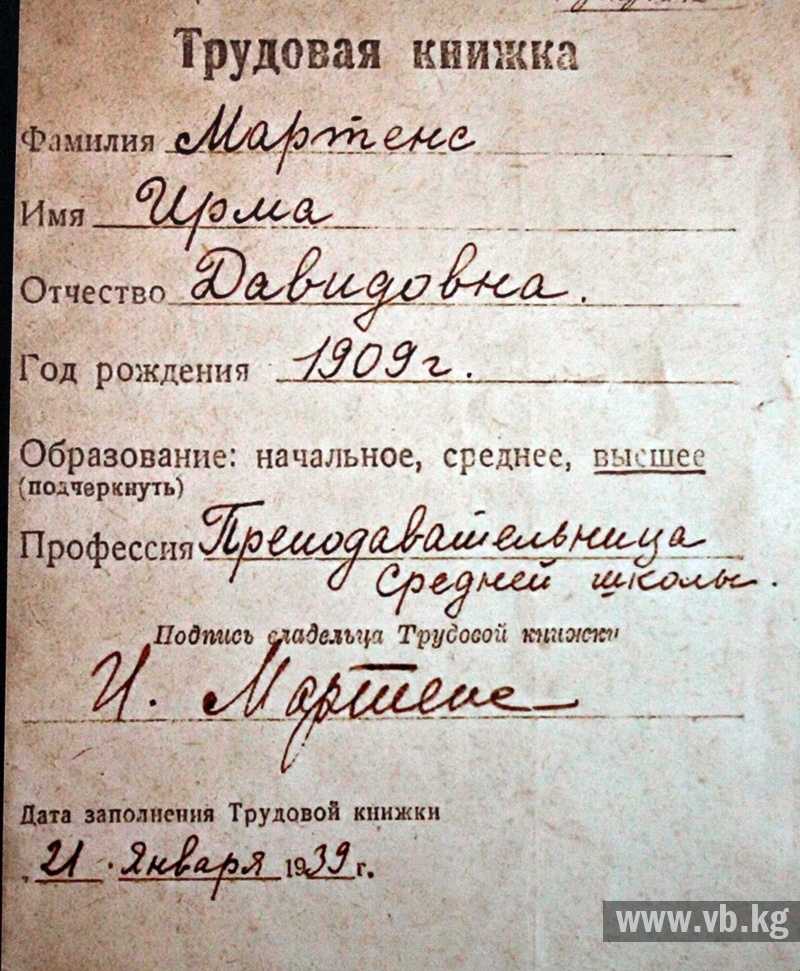 Трудовая книжка
Фамилия Мартенс
Имя Ирма
Отчество Давидовна.
Год рождения 1909 г.
Образование: начальное, среднее, высшее
(подчеркнуть)
Профессия Преподавательница
средней школы.
Подпись владельца Трудовой книжки
И. Мартенс
Дата заполнения Трудовой книжки
"21" января 1939 г.
www.vb.kg